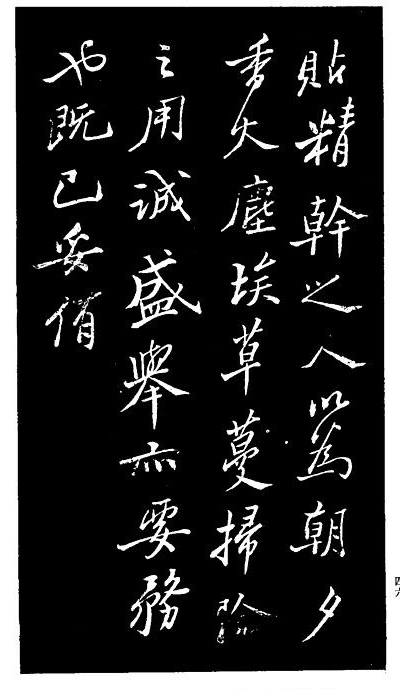 貼精幹之人以為朝夕
香火塵埃草蔓掃除
之用誠盛舉亦要務
也既已妥侑
四六